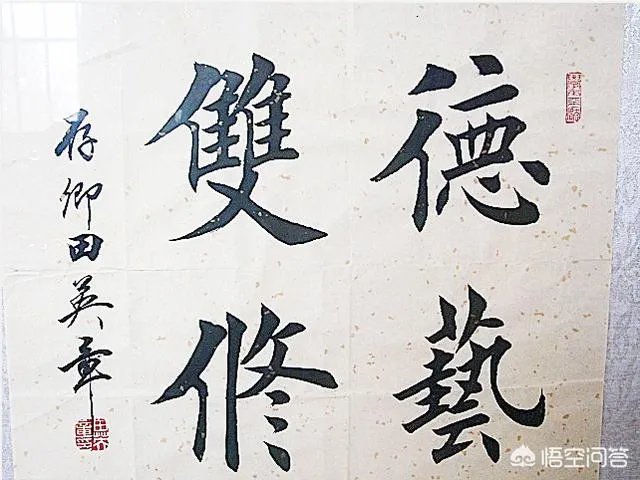 德藝
雙修
存卿田英章
悟空问答